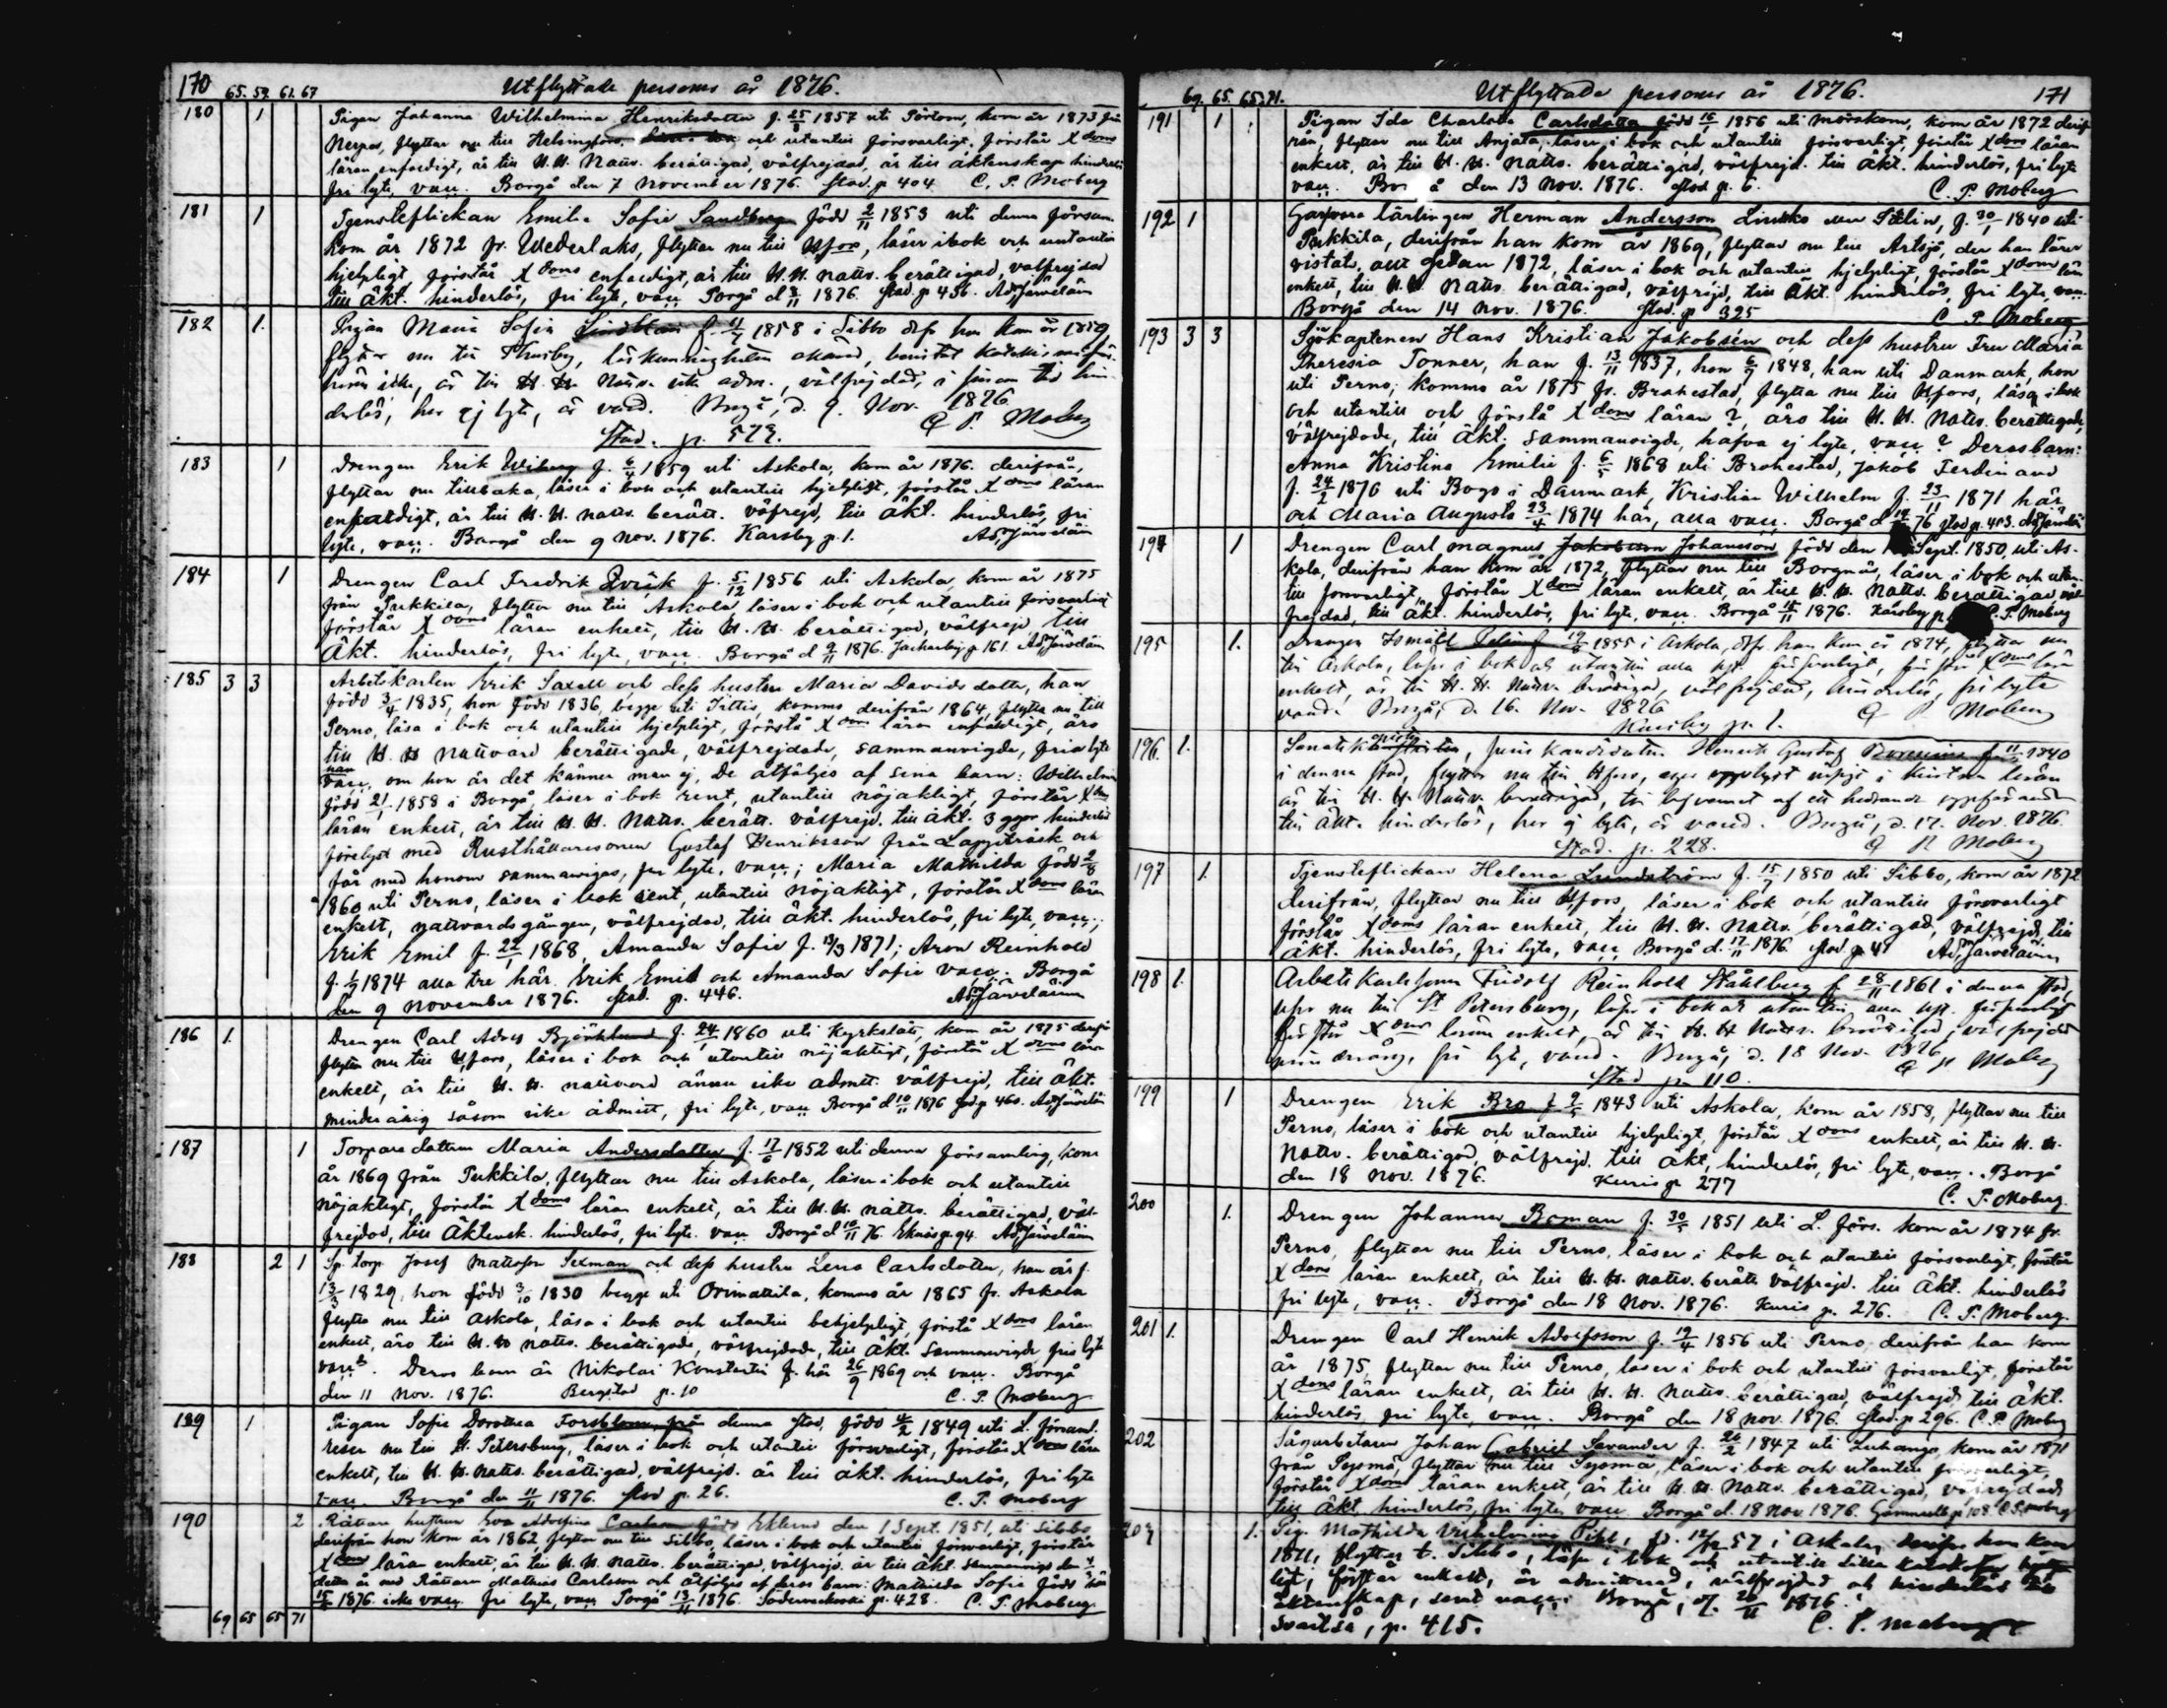 170 65. 59. 61. 67 Utflyttade persons år 1876.
180 1 Pigan Johanna Wilhelmina Henriksdotter f. 25/8 1857 uti Pörtom, kom år 1873 från
Nerpes, flyttar nu till Helsingfors, och utantill försvarligt, förstår Xdoms
läran enfaldigt, är till H. H. Nattv. berättigad, välfrejdad, är till äktenskap hinderlös
fri lyte, vacc. Borgå den 7 November 1876. Stad. p 404 C. P. Moberg
181 1 Tjensteflickan Emilia Sofia Sandberg född 2/11 1853 uti denna församl.
kom år 1872 fr. Wederlaks, flyttar nu till Hfors, läser i bok och utantill
hjelpligt, förstår Xdoms enfaldigt, är till H. H. nattv. berättigad, välfrejdad
till äkt. hinderlös, fri lyte, vacc. Borgå d 8/11 1876. Stad. p 456. Ad. Järveläin
182 1. Pigan Maria Sofia Lindblom f. 11/7 1858 i Sibbo
flyttar nu till Thusby,
är till H. H. Nattv. icke adm., välfrejdad,
har ej lyte, är vacc. Borgå, d. 9. Nov. 1876
Stad. p. 572. C. P. Moberg
183 1 Drengen Erik Wiberg f. 6/4 1859 uti Askola, kom år 1876. derifrån,
flyttar nu tillbaka, läser i bok och utantill hjelpligt, förstår Xdoms läran
enfaldigt, är till H. H. nattv. berätt. välfrejd, till äkt. hinderlös, fri
lyte, vacc. Borgå den 9 Nov. 1876. Karsby p. 1. Ad. Järveläin
184 1 Drengen Carl Fredrik Qvick f. 5/12 1856 uti Askola, kom år 1875
från Pukkila, flyttar nu till Askola, läser i bok och utantill försvarligt
förstår Xdoms läran enkelt, till H. H. berättigad, välfrejd till
äkt. hinderlös, fri lyte, vacc. Borgå d 9/11 1876. Jackarby p 161. Ad. Järveläin
185 3 3 Arbetskarlen Erik Saxell och dess hustru Maria Davidsdotter, han
född 3/4 1835, hon född 1836, begge uti Sittis, komma derifrån 1864, flytta nu till
Perno, läsa i bok och utantill hjelpligt, förstå Xdoms läran enfaldigt, äro
till H. H nattvard berättigade, välfrejdade, sammanvigde, fria lyte
han vacc, om hon är det känner man ej, De åtföljes af sina barn: Wilhelmina
född 21/1 1858 i Borgå, läser i bok rent, utantill nöjaktigt, förstår Xdoms
läran enkelt, är till H. H. Nattv. berätt. välfrejd. till äkt. 3 ggr hinderlöst
förelyst med Rusthållaresonen Gustaf Henriksson från Lappträsk och
får med honom sammanvigas, fri lyte, vacc; Maria Mathilda född 2/8
1860 uti Perno, läser i bok rent, utantill nöjaktigt, förstår Xdoms läran
enkelt, nattvardsgången, välfrejdad, till äkt. hinderlös, fri lyte, vacc;
Erik Emil f. 22/1 1868, Amanda Sofia f. 13/3 1871; Aron Reinhold
f. 1/7 1874 alla tre här. Erik Emil och Amanda Sofia vacc. Borgå
den 9 November 1876. Stad. p. 446. Ad. Järveläin
186 1. Drengen Carl Adolf Björklund f. 24/1 1860 uti Kyrkslätt, kom år 1875 derifrån
flyttar nu till Hfors, läser i bok och utantill nöjaktigt, förstår Xdoms läran
enkelt, är till H. H. nattvard ännu icke admitt. välfrejd, till äkt.
minderårig såsom icke admitt, fri lyte, vacc Borgå d 10/11 1876 Stad. p 460. Ad. Järveläin
187 1 Torparedottern Maria Andersdotter f. 17/6 1852 uti denna församling, kom
år 1869 från Pukkila, flyttar nu till Askola, läser i bok och utantill
nöjaktigt, förstår Xdoms läran enkelt, är till H. H. nattv. berättigad, väl-
frejdad, till Äktensk. hinderlös, fri lyte. vacc Borgå d 10/11 76. Eknäs p. 94. Ad. Järveläin
188 2 1 Sp. torp. Josef Mattsson Sexman och dess hustru Lena Carlsdotter, han är f.
13/3 1829, hon född 3/10 1830 begge uti Orimattila, komma år 1865 fr. Askola
flytta nu till Askola, läsa i bok och utantill behjelpligt, förstå Xdoms läran
enkelt, äro till H. H nattv. berättigade, välfrejdade, till äkt. sammanvigde fria lyte
vacc. Deras barn är Nikolai Konstantin f. här 26/9 1869 och vacc. Borgå
den 11 Nov. 1876. Bergstad p. 10 C. P. Moberg
189 1 Pigan Sofia Dorothea Forsblom från denna stad, född 4/2 1849 uti L. församl.
reser nu till St. Petersburg, läser i bok och utantill försvarligt, förstår Xdoms läran
enkelt, till H. H. nattv. berättigad, välfrejd. är till äkt. hinderlös, fri lyte
vacc. Borgå den 11/11 1876. Stad p. 26. C. P. Moberg
190 2 Rättare hustrun Eva Adolfina Carlsson född Eklund den 1 Sept. 1851, uti Sibbo,
derifrån hon kom år 1862, flyttar nu till Sibbo, läser i bok och utantill försvarligt, förstår
Xdoms läran enkelt, är till H. H. nattv. berättigad, välfrejd. är till äkt. sammanvigd den
detta år med Rättaren Mathias Carlsson och åtföljes af deras barn: Mathilda Sofia född här
15/8 1876. icke vacc. fri lyte, vacc Borgå 13/11 1876. p. 428. C. P. Moberg.
69 65 65 71

69. 65. 65. 71. Utflyttade persons år 1876. 171
191 1 Pigan Ida Charlotta Carlsdotter född 16/1 1856 uti Mörskom, kom år 1872 derif-
rån, flyttar nu till Anjala, läser i bok och utantill försvarligt, förstår Xdoms läran
enkelt, är till H. H. nattv. berättigad, välfrejd. till äkt. hinderlös, fri lyte
vacc. Borgå den 13 Nov. 1876. Stad p. 6. C. P. Moberg
192 1 Garfvare lärlingen Herman Andersson Linsko f. 30/1 1840 uti
Pukkila, derifrån han kom år 1869, flyttar nu till Artsjö, der han lärer
vistats, allt sedan 1872, läser i bok och utantill hjelpligt, förstår Xdoms läran
enkelt, till H. H. nattv. berättigad, välfrejd, till äkt. hinderlös, fri lyte, vacc.
Borgå den 14 Nov. 1876. Stad. p 325 C. P. Moberg
193 3 3 Sjökaptenen Hans Kristian Jakobsén och dess hustru Fru Maria
Theresia Tonner, han f. 13/11 1837, hon 6/7 1848, han uti Danmark, hon
uti Perno; komma år 1875 fr. Brahestad, flytta nu till Hfors, läsa i bok
och utantill och förstå Xdoms läran ?, äro till H. H. Nattv. berättigade,
välfrejdade, till äkt. sammanvigde, hafva ej lyte, vacc ? Deras barn:
Anna Kristina Emilia f. 6/5 1868 uti Brahestad, Jakob Ferdinand
f. 24/2 1870 uti Bogo i Danmark, Kristian Wilhelm f. 23/11 1871 här
och Maria Augusta 23/4 1874 här, alla vacc. Borgå d 76 Stad p. 413. Ad. Järveläin
194 1 Drengen Carl Magnus Jakobsson Johansson född den Sept. 1850, uti As-
kola, derifrån han kom år 1872, flyttar nu till Borgnäs, läser i bok och utan-
till försvarligt, förstår Xdoms läran enkelt, är till H. H. Nattv. berättigad, väl-
frejdad, till äkt. hinderlös, fri lyte, vacc. Borgå 15/11 1876. Karsby p. C. P. Moberg
195 1. Drengen Ismaël 1855 i Askola, kom år 1874, flyttar nu
till Askola, läser i bok och utantill
enkelt, är till H. H. Nattv. berättigad, välfrejdad, hinderlös, fri lyte
vacc. Borgå, d. 16. Nov. 1876
Karsby p. 1. C. P. Moberg
196. 1. Henrik Gustaf 1840
i denna stad, flyttar nu till Hfors,
är till H. H. Nattv. berättigad,
till äkt. hinderlös, har ej lyte, är vacc. Borgå, d. 17. Nov. 1876.
Stad. p. 228. C. P. Moberg
197 1. Tjensteflickan Helena Lundström f. 15/7 1850 uti Sibbo, kom år 1872
derifrån, flyttar nu till Hfors, läser i bok och utantill försvarligt
förstår Xdoms läran enkelt, till H. H. Nattv. berättigad, välfrejd, till
äkt. hinderlös, fri lyte, vacc, Borgå d. 17/11 1876. Stad. p 41 Ad. Järveläin
198 1. Arbetskarlssonen Fridolf Reinhold Ståhlberg f. 28/11 1861 i denna stad,
nu till St Petersburg, läser i bok och utantill
förstår Xdoms läran enkelt, är till H. H Nattv.
fri lyte, vacc. Borgå, d. 18 Nov. 1876
Stad p. 110. C. P. Moberg
199 1 Drengen Erik Bro f. 9/5 1843 uti Askola, kom år 1858, flyttar nu till
Perno, läser i bok och utantill hjelpligt, förstår Xdoms enkelt, är till H. H.
Nattv. berättigad, välfrejd. till äkt, hinderlös, fri lyte, vacc. Borgå
den 18 Nov. 1876. Kuris p 277 C. P. Moberg.
200 1. Drengen Johannes Boman f. 30/5 1851 uti L. förs. kom år 1874 fr.
Perno, flyttar nu till Perno, läser i bok och utantill försvarligt, förstår
Xdoms läran enkelt, är till H. H. nattv. berätt. välfrejd. till äkt. hinderlös
fri lyte, vacc. Borgå den 18 Nov. 1876. Kuris p. 276. C. P. Moberg.
201 1. Drengen Carl Henrik Adolfsson f. 19/4 1856 uti Perno, derifrån han kom
år 1875, flyttar nu till Perno, läser i bok och utantill försvarligt, förstår
Xdoms läran enkelt, är till H. H. Nattv. berättigad, välfrejd, till äkt.
hinderlös, fri lyte, vacc. Borgå den 18 nov. 1876. Stad. p 296. C. P. Moberg
202 Sågarbetaren Johan Gabriel Savander f. 26/2 1847 uti Luhango, kom år 1871
från Sysmä, flyttar nu till Sysmä, läser i bok och utantill försvarligt,
förstår Xdoms läran enkelt, är till H. H. Nattv. berättigad, välfrejdad
till äkt. hinderlös, fri lyte, vacc Borgå d. 18 Nov 1876. p 108. C. P. Moberg
203 1. Pig. Mathilda Vilhelmina Pihl, fd. 57 i Askola, derifrån hon kom
1871, flyttar t. Sibbo, läser i bok och utantill lilla katekesen
förstår enkelt, är admitterad, välfrejdad och hinderlös till
äktenskap, samt vacc; Borgå, d. 20/11 1876.
Svartså, p. 415. C. P. Moberg